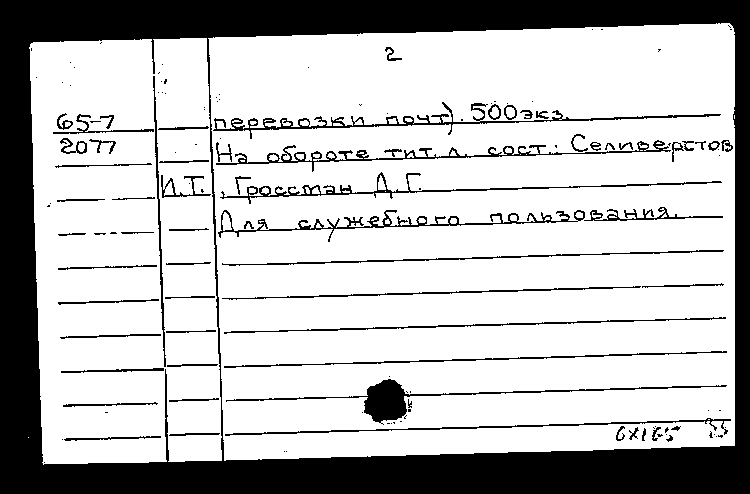 2
65-7 перевозки почт). 500экз.
2077 На обороте тит. л. сост.: Селиверстов
И.Т., Гроссман Д.Г.
Для служебного пользования.
6XI65